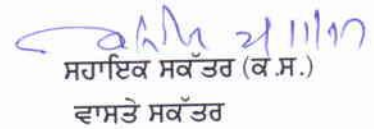 ਸਹਾਇਕ ਸਕੱਤਰ (ਕ.ਸ.)
ਵਾਸਤੇ ਸਕੱਤਰ